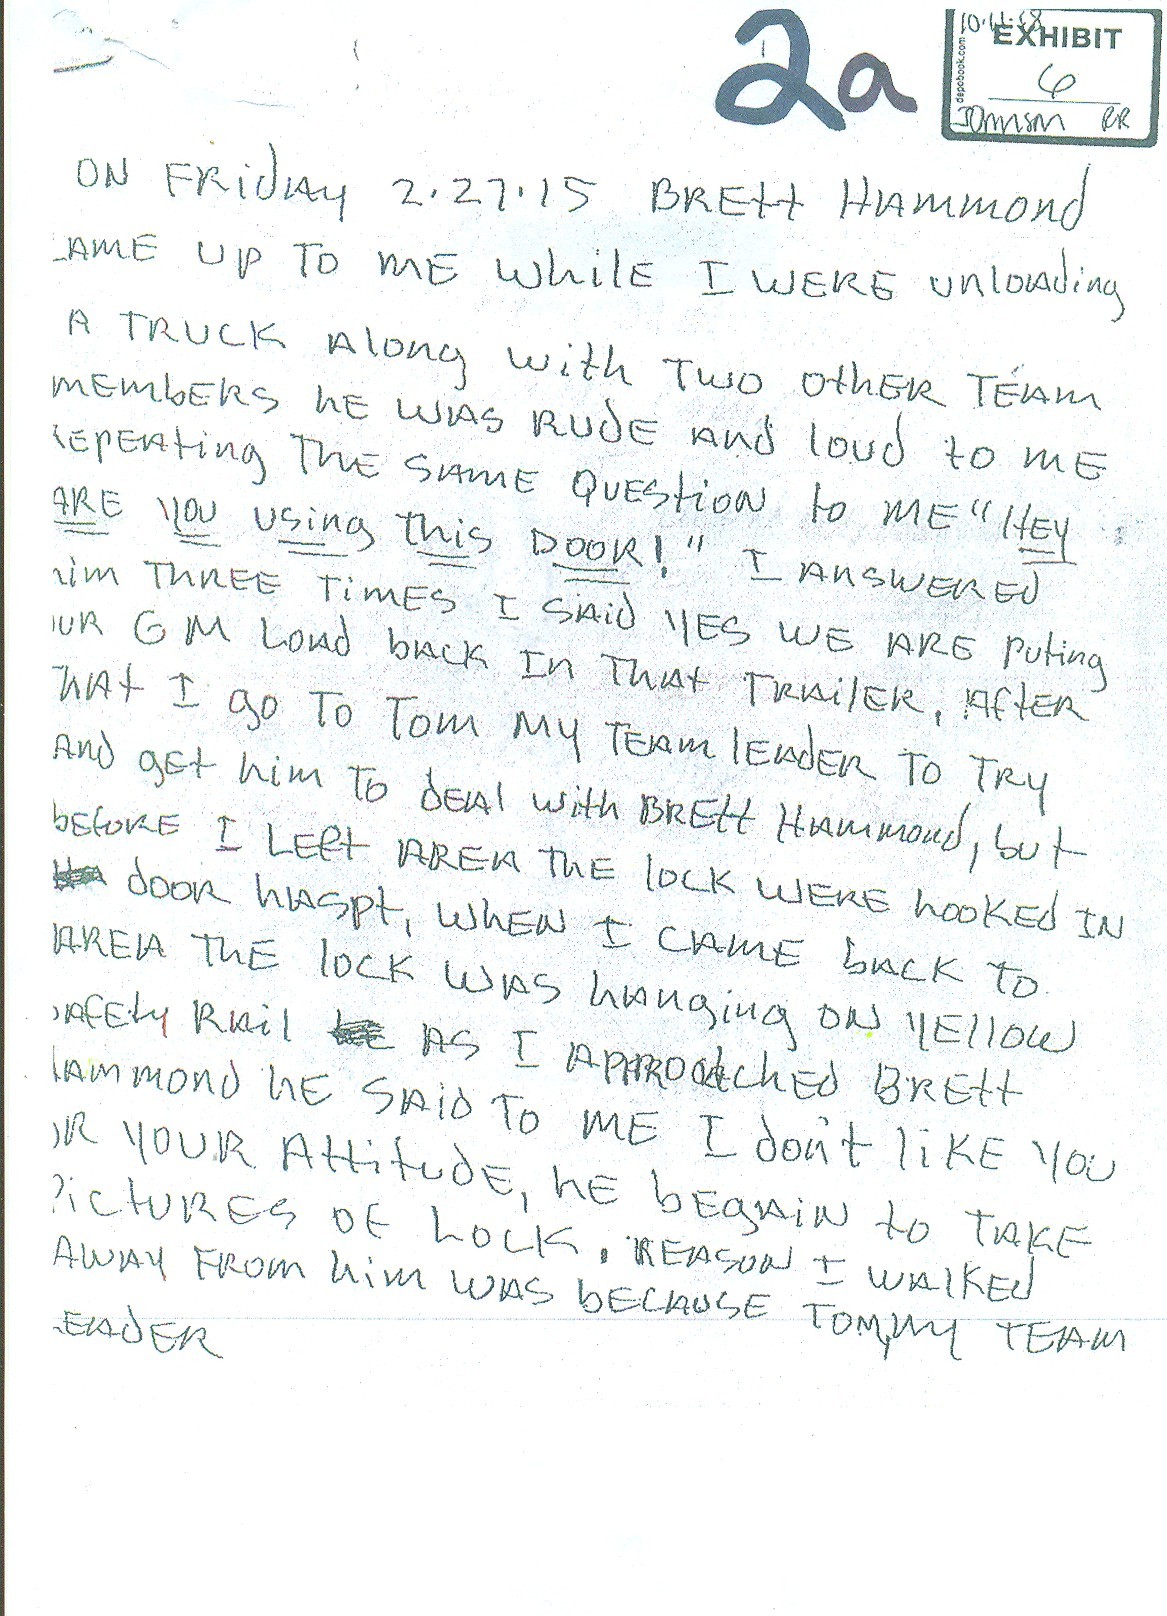 2a
10.11.18
EXHIBIT
6
Johnson RR
depobook.com
ON FRiday 2.27.15 BREtt Hammond
AME UP TO ME While I WERE unloading
A TRUCK Along with TWO OthER TEAM
MEMbERS hE WAS RUdE ANd loud to ME
REPEAting THE SAME QUEStioN to ME "HEy
ARE YOU using this DOOR!" I ANSWEREd
him THREE TiMES I SAid YES WE ARE Puting
UR GM LOAd bACK IN THAt TRAilER, AftER
THAt I go TO TOM MY TEAM lEAdER TO TRY
ANd gEt him TO dEAl with BREtt HAMMONd, but
bEfORE I LEft AREA THE lOCK WERE hOOKEd IN
dOOR hAspt, WhEN I CAME bACK to
AREA THE lOCK WAS hANging ON YEllOW
SAfEty RAil AS I APPROAchEd BREtt
HAMMONd hE SAid TO ME I don't liKE YOU
OR YOUR AttitudE, hE bEgAiN to TAKE
PiCTURES OF LOCK. REASON I WAlKEd
AWAY FROM him WAS bECAUSE TOMMY TEAM
LEAdER